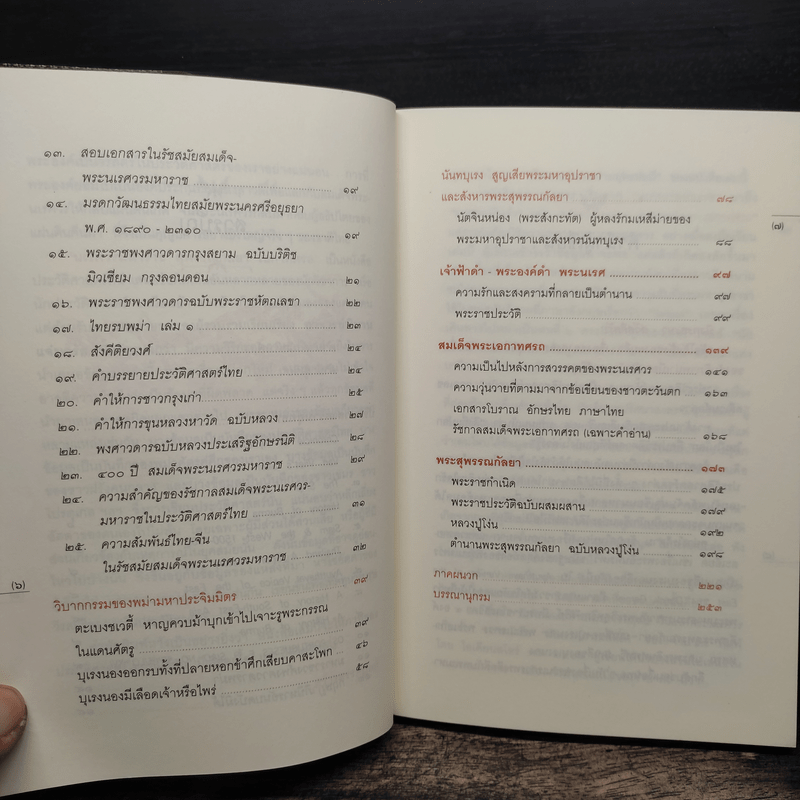 ๑๓. สอบเอกสารในรัชสมัยสมเด็จ-
พระนเรศวรมหาราช ๑๙
๑๔. มรดกวัฒนธรรมไทยสมัยพระนครศรีอยุธยา
พ.ศ. ๑๘๙๐ - ๒๓๑๐ ๑๙
๑๕. พระราชพงศาวดารกรุงสยาม ฉบับบริติช
มิวเซียม กรุงลอนดอน ๒๑
๑๖. พระราชพงศาวดารฉบับพระราชหัตถเลขา ๒๒
๑๗. ไทยรบพม่า เล่ม ๑ ๒๓
๑๘. สังคีติยวงศ์ ๒๔
๑๙. คำบรรยายประวัติศาสตร์ไทย ๒๔
๒๐. คำให้การชาวกรุงเก่า ๒๕
๒๑. คำให้การขุนหลวงหาวัด ฉบับหลวง ๒๗
๒๒. พงศาวดารฉบับหลวงประเสริฐอักษรนิติ ๒๘
๒๓. ๔๐๐ ปี สมเด็จพระนเรศวรมหาราช ๒๙
๒๔. ความสำคัญของรัชกาลสมเด็จพระนเรศวร-
มหาราชในประวัติศาสตร์ไทย ๓๑
๒๕. ความสัมพันธ์ไทย-จีน
ในรัชสมัยสมเด็จพระนเรศวรมหาราช ๓๒
(๖)
วิบากกรรมของพม่ามหาประจิมมิตร ๓๙
ตะเบงชเวตี้ หาญควบม้าบุกเข้าไปเจาะรูพระกรรณ
ในแดนศัตรู ๓๙
บุเรงนองออกรบทั้งที่ปลายหอกข้าศึกเสียบคาสะโพก ๔๖
บุเรงนองมีเลือดเจ้าหรือไพร่ ๕๘
นันทบุเรง สูญเสียพระมหาอุปราชา
และสังหารพระสุพรรณกัลยา ๗๘
(๗)
นัดจินหน่อง (พระสังกะทัต) ผู้หลงรักมเหสีม่ายของ
พระมหาอุปราชาและสังหารนันทบุเรง ๘๘
เจ้าฟ้าดำ - พระองค์ดำ พระนเรศ ๙๗
ความรักและสงครามที่กลายเป็นตำนาน ๙๗
พระราชประวัติ ๙๙
สมเด็จพระเอกาทศรถ ๑๓๙
ความเป็นไปหลังการสวรรคตของพระนเรศวร ๑๔๑
ความวุ่นวายที่ตามมาจากข้อเขียนของชาวตะวันตก ๑๖๓
เอกสารโบราณ อักษรไทย ภาษาไทย
รัชกาลสมเด็จพระเอกาทศรถ (เฉพาะคำอ่าน) ๑๖๘
พระสุพรรณกัลยา ๑๗๓
พระราชกำเนิด ๑๗๕
พระราชประวัติฉบับผสมผสาน ๑๗๙
หลวงปู่โง่น ๑๙๒
ตำนานพระสุพรรณกัลยา ฉบับหลวงปู่โง่น ๑๙๘
ภาคผนวก ๒๒๑
บรรณานุกรม ๒๕๓